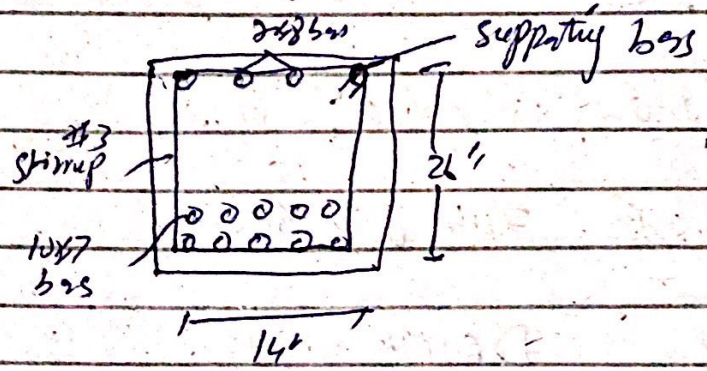 2#8 bars
supporting bars
#3
stirrup
26"
10#7
bars
14"